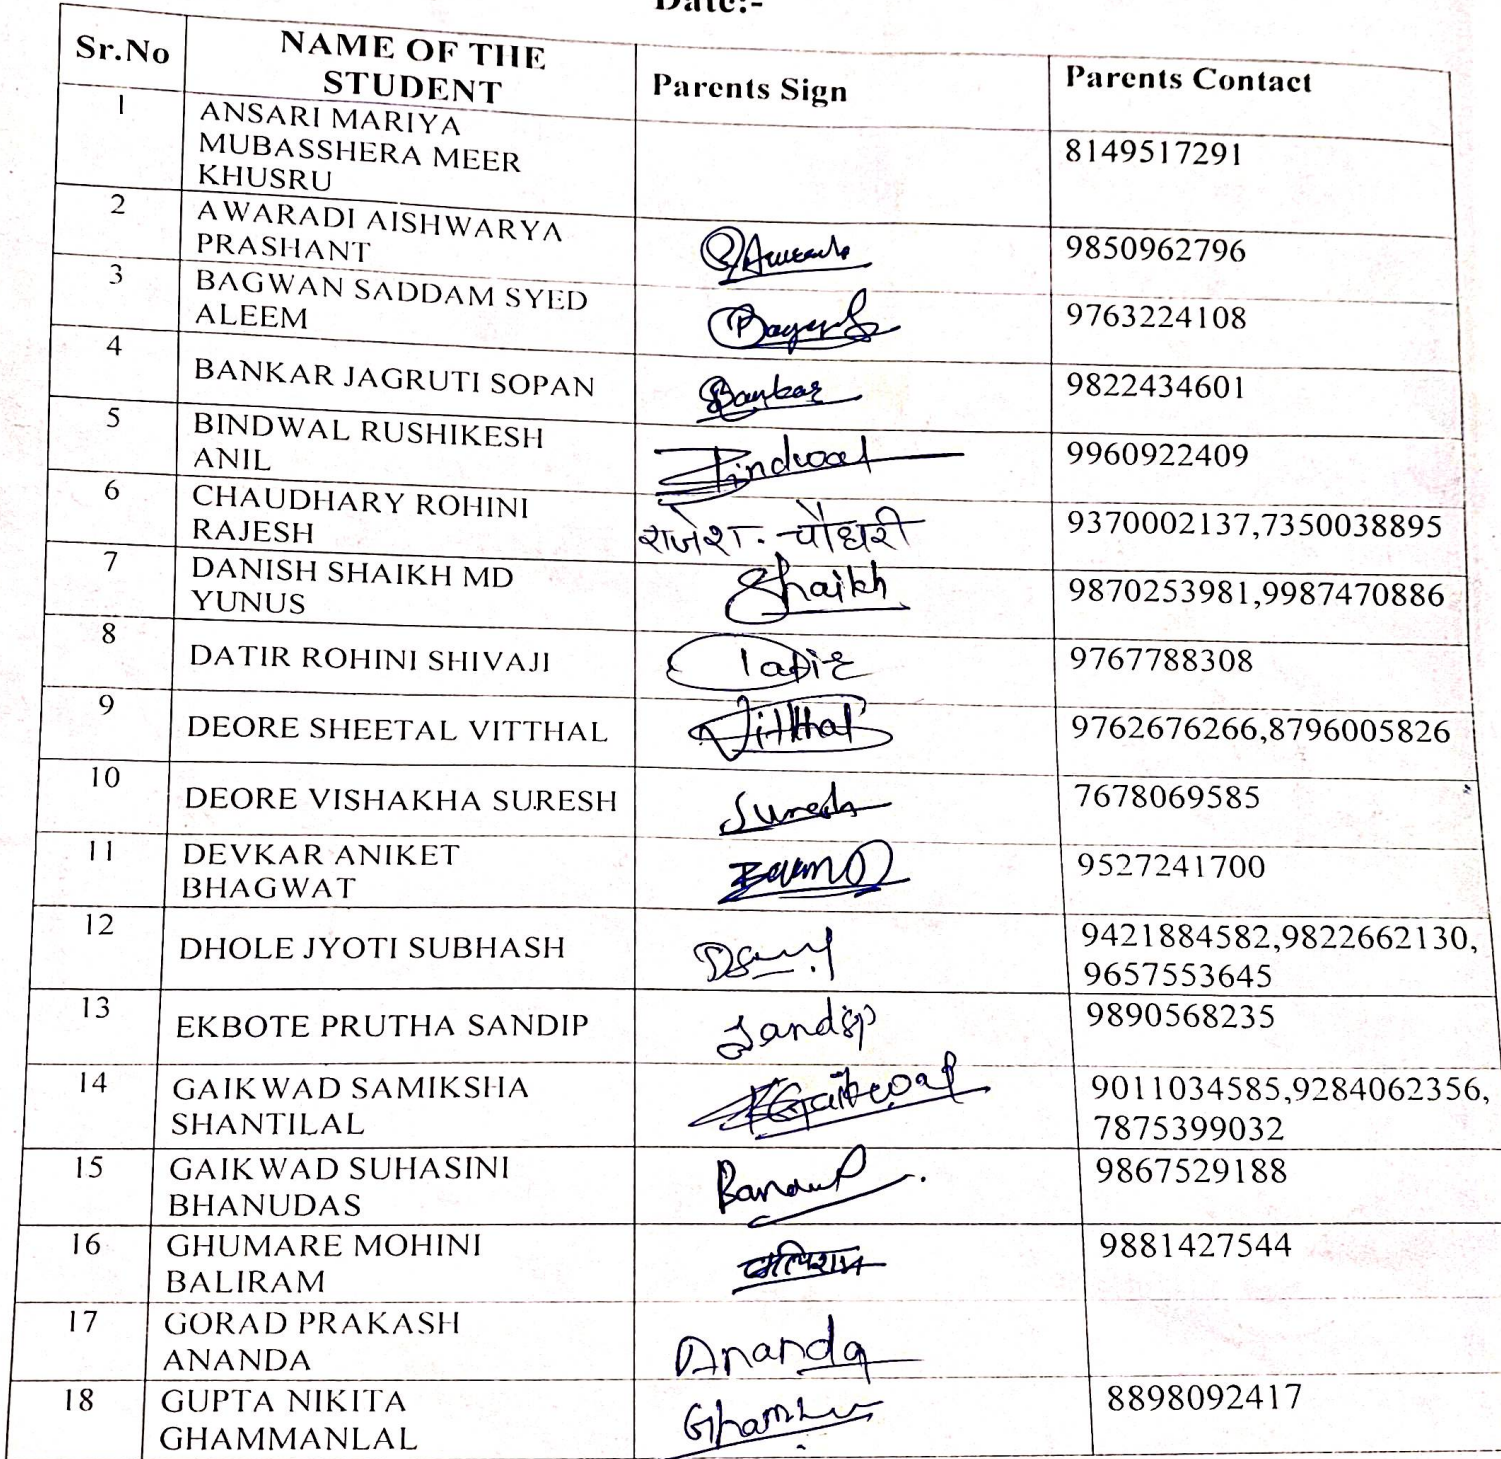 Date:-
Sr.No NAME OF THE STUDENT Parents Sign Parents Contact
1 ANSARI MARIYA
MUBASSHERA MEER
KHUSRU 8149517291
2 AWARADI AISHWARYA
PRASHANT 9850962796
3 BAGWAN SADDAM SYED
ALEEM 9763224108
4 BANKAR JAGRUTI SOPAN Bankar 9822434601
5 BINDWAL RUSHIKESH
ANIL Bindwal 9960922409
6 CHAUDHARY ROHINI
RAJESH राजेश. चौधरी 9370002137,7350038895
7 DANISH SHAIKH MD
YUNUS Shaikh 9870253981,9987470886
8 DATIR ROHINI SHIVAJI Datir 9767788308
9 DEORE SHEETAL VITTHAL Vitthal 9762676266,8796005826
10 DEORE VISHAKHA SURESH Suresh 7678069585
11 DEVKAR ANIKET
BHAGWAT 9527241700
12 DHOLE JYOTI SUBHASH 9421884582,9822662130,
9657553645
13 EKBOTE PRUTHA SANDIP Sandip 9890568235
14 GAIKWAD SAMIKSHA
SHANTILAL Gaikwad 9011034585,9284062356,
7875399032
15 GAIKWAD SUHASINI
BHANUDAS 9867529188
16 GHUMARE MOHINI
BALIRAM बलिराम 9881427544
17 GORAD PRAKASH
ANANDA Ananda
18 GUPTA NIKITA
GHAMMANLAL 8898092417